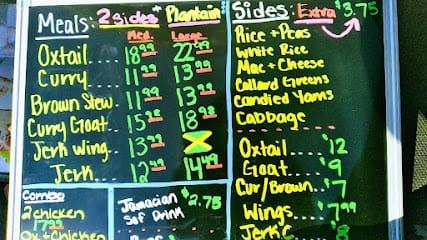 Meals: 2 Sides + Plantain
Med. Large
Oxtail... 18.99 22.49
Curry.... 11.99 13.99
Brown Stew.. 11.99 13.99
Curry Goat.. 15.25 18.98
Jerk Wing.. 13.99
Jerk..... 12.49 14.49
Combo
2 chicken
17.99
Ox + Chicken
Jamacian $2.75
Sof Drink
Sides: Extra $3.75
Rice + Peas
White Rice
Mac + Cheese
Collard Greens
Candied Yams
Cabbage
Oxtail... $12
Goat.... $9
Cur/Brown.. $7
Wings... $7.99
Jerk C $8